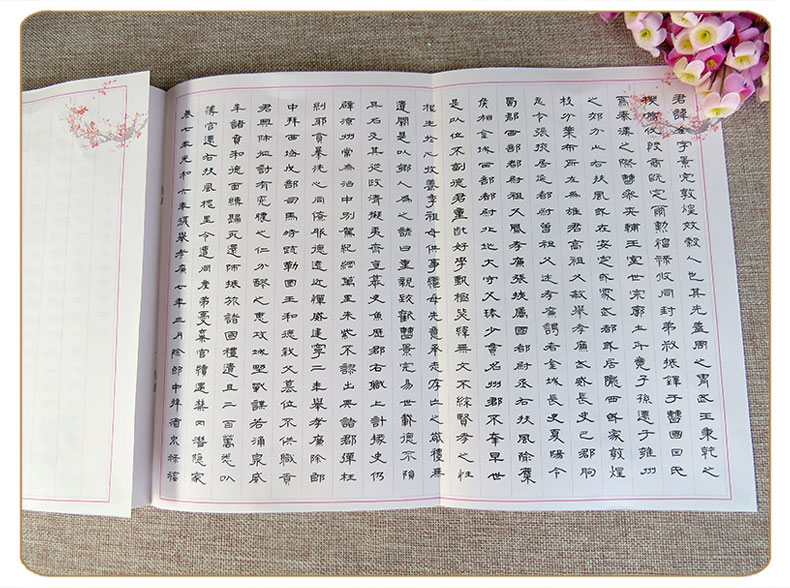 君諱全字景完敦煌效穀人也其先蓋周之胄武王秉乾之
機翦伐殷商既定爾勳福祿攸同封弟叔振鐸于曹國因氏
焉秦漢之際曹參夾輔王室世宗廓土斥竟子孫遷于雍州
之郊分止右扶風或在安定或處武都或居隴西或家敦煌
枝分葉布所在為雄君高祖父敏舉孝廉武威長史巴郡朐
忍令張掖居延都尉曾祖父述孝廉謁者金城長史夏陽令
蜀郡西部都尉祖父鳳孝廉張掖屬國都尉丞右扶風隃麋
侯相金城西部都尉北地太守父琫少貫名州郡不幸早世
是以位不副德君童齔好學甄極毖緯無文不綜賢孝之性
根生於心收養季祖母供事繼母先意承志存亡之敬禮無
遺闕是以鄉人為之諺曰重親致歡曹景完易世載德不隕
其名及其從政清擬夷齊直慕史魚歷郡右職上計掾史仍
辟涼州常為治中別駕紀綱萬里朱紫不謬出典諸郡彈枉
糾邪貪暴洗心同僚服德遠近憚威建寧二年舉孝廉除郎
中拜西域戊部司馬時疏勒國王和德弒父篡位不供職貢
君興師征討有吮膿之仁分醪之惠攻城野戰謀若涌泉威
牟諸賁和德面縛歸死還師振旅諸國禮遺且二百萬悉以
薄官遷右扶風槐里令遭同產弟憂棄官續遇禁冈潛隱家
巷七年光和六年復舉孝廉七年三月除郎中拜酒泉祿福